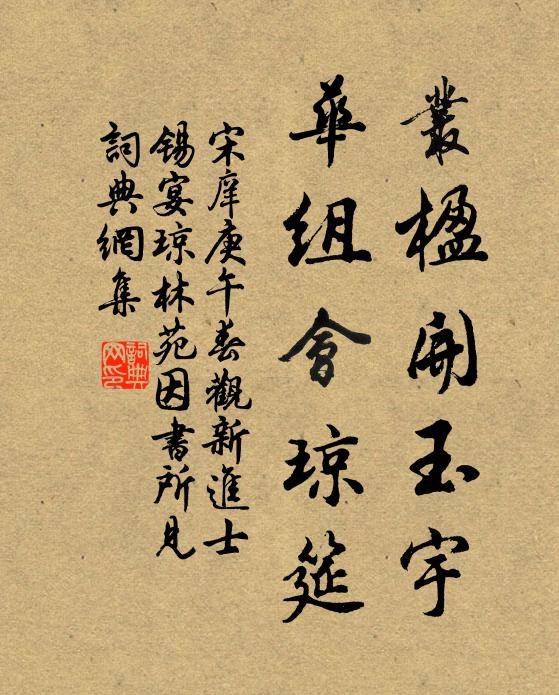 叢楹開玉宇
華組會琼筵
宋庠庚午春觀新進士
錫宴琼林苑因書所見
詞典網集
詞典網印